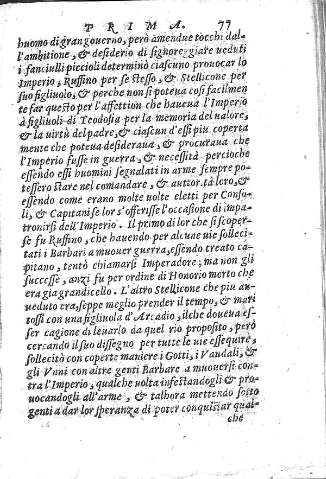 PRIMA. 77
huomo di gran gouerno, però amendue tocchi dal-
l'ambitione, & desiderio di signoreggiare ueduti
i fanciulli piccioli determinò ciascuno prouocar lo
Imperio, Ruffino per se stesso, & Stellicone per
suo figliuolo, & perche non si poteua così facilmen
te far questo per l'affettion che haueua l'Imperio
à figliuoli di Teodosia per la memoria del ualore,
& la uirtù del padre, & ciascun d'essi piu coperta
mente che poteua desideraua, & procuraua che
l'Imperio fusse in guerra, & necessità percioche
essendo essi huomini segnalati in arme sempre po-
tessero stare nel comandare, & autorità loro, &
essendo come erano molte uolte eletti per Conso-
li, & Capitani se lor s'offerisse l'occasione di impa-
tronirsi dell'Imperio. Il primo di lor che si scoper-
se fu Ruffino, che hauendo per alcune uie solleci-
tati i Barbari a mouer guerra, essendo creato ca-
pitano, tentò chiamarsi Imperadore; ma non gli
successe, anzi fu per ordine di Honorio morto che
era gia grandicello. L'altro Stellicone che piu au-
ueduto era, seppe meglio prender il tempo, & mari
tossi con una figliuola d'Arcadio, ilche doueua es-
ser cagione di leuarlo da quel rio proposito, però
cercando il suo dissegno per tutte le uie essequire,
sollecitò con coperte maniere i Gotti, i Vandali, &
gli Vnni con altre genti Barbare a muouersi con-
tra l'Imperio, qualche uolta infestandogli & pro-
uocandogli all'arme, & talhora mettendo sotto
genti a dar lor speranza di poter conquistar qual-
che